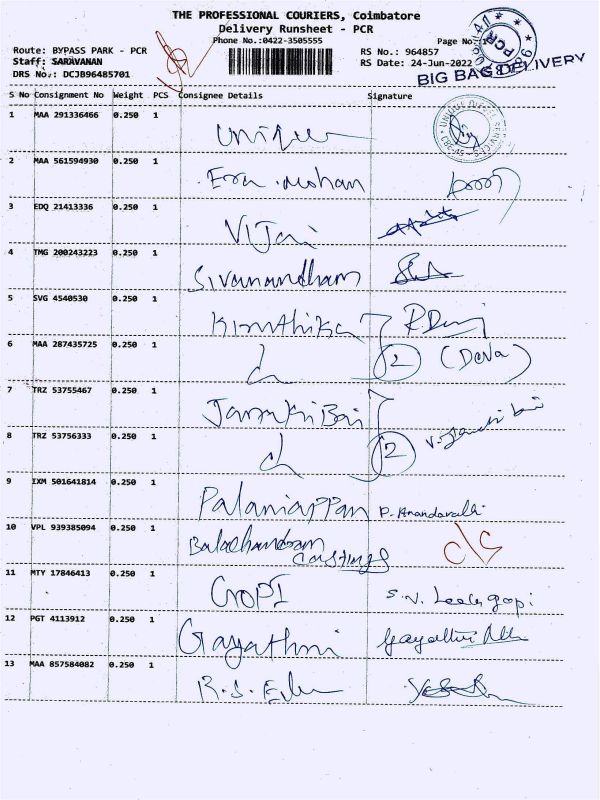 THE PROFESSIONAL COURIERS, Coimbatore
Delivery Runsheet - PCR
Phone No.:0422-3505555
Page No.:1
Route: BYPASS PARK - PCR
RS No.: 964857
Staff: SARAVANAN
RS Date: 24-Jun-2022
DRS No.: DCJB96485701
BIG BAG DELIVERY
PCR
S No Consignment No Weight PCS Consignee Details Signature
1 MAA 291336466 0.250 1 Unique
2 MAA 561594930 0.250 1 mohan
3 EDQ 21413336 0.250 1 Vijai
4 TMG 200243223 0.250 1 Sivanandham
5 SVG 4540530 0.250 1 Kiruthika
6 MAA 287435725 0.250 1 2 (Deva)
7 TRZ 53755467 0.250 1 Janaki Bai
8 TRZ 53756333 0.250 1 2
9 IXM 501641814 0.250 1 Palaniappan P. Anandavalli
10 VPL 939385094 0.250 1 Balachandram castings c/s
11 MTY 17846413 0.250 1 GOPI S.N. gopi
12 PGT 4113912 0.250 1 Gayathri gayathri
13 MAA 857584082 0.250 1 R.S.